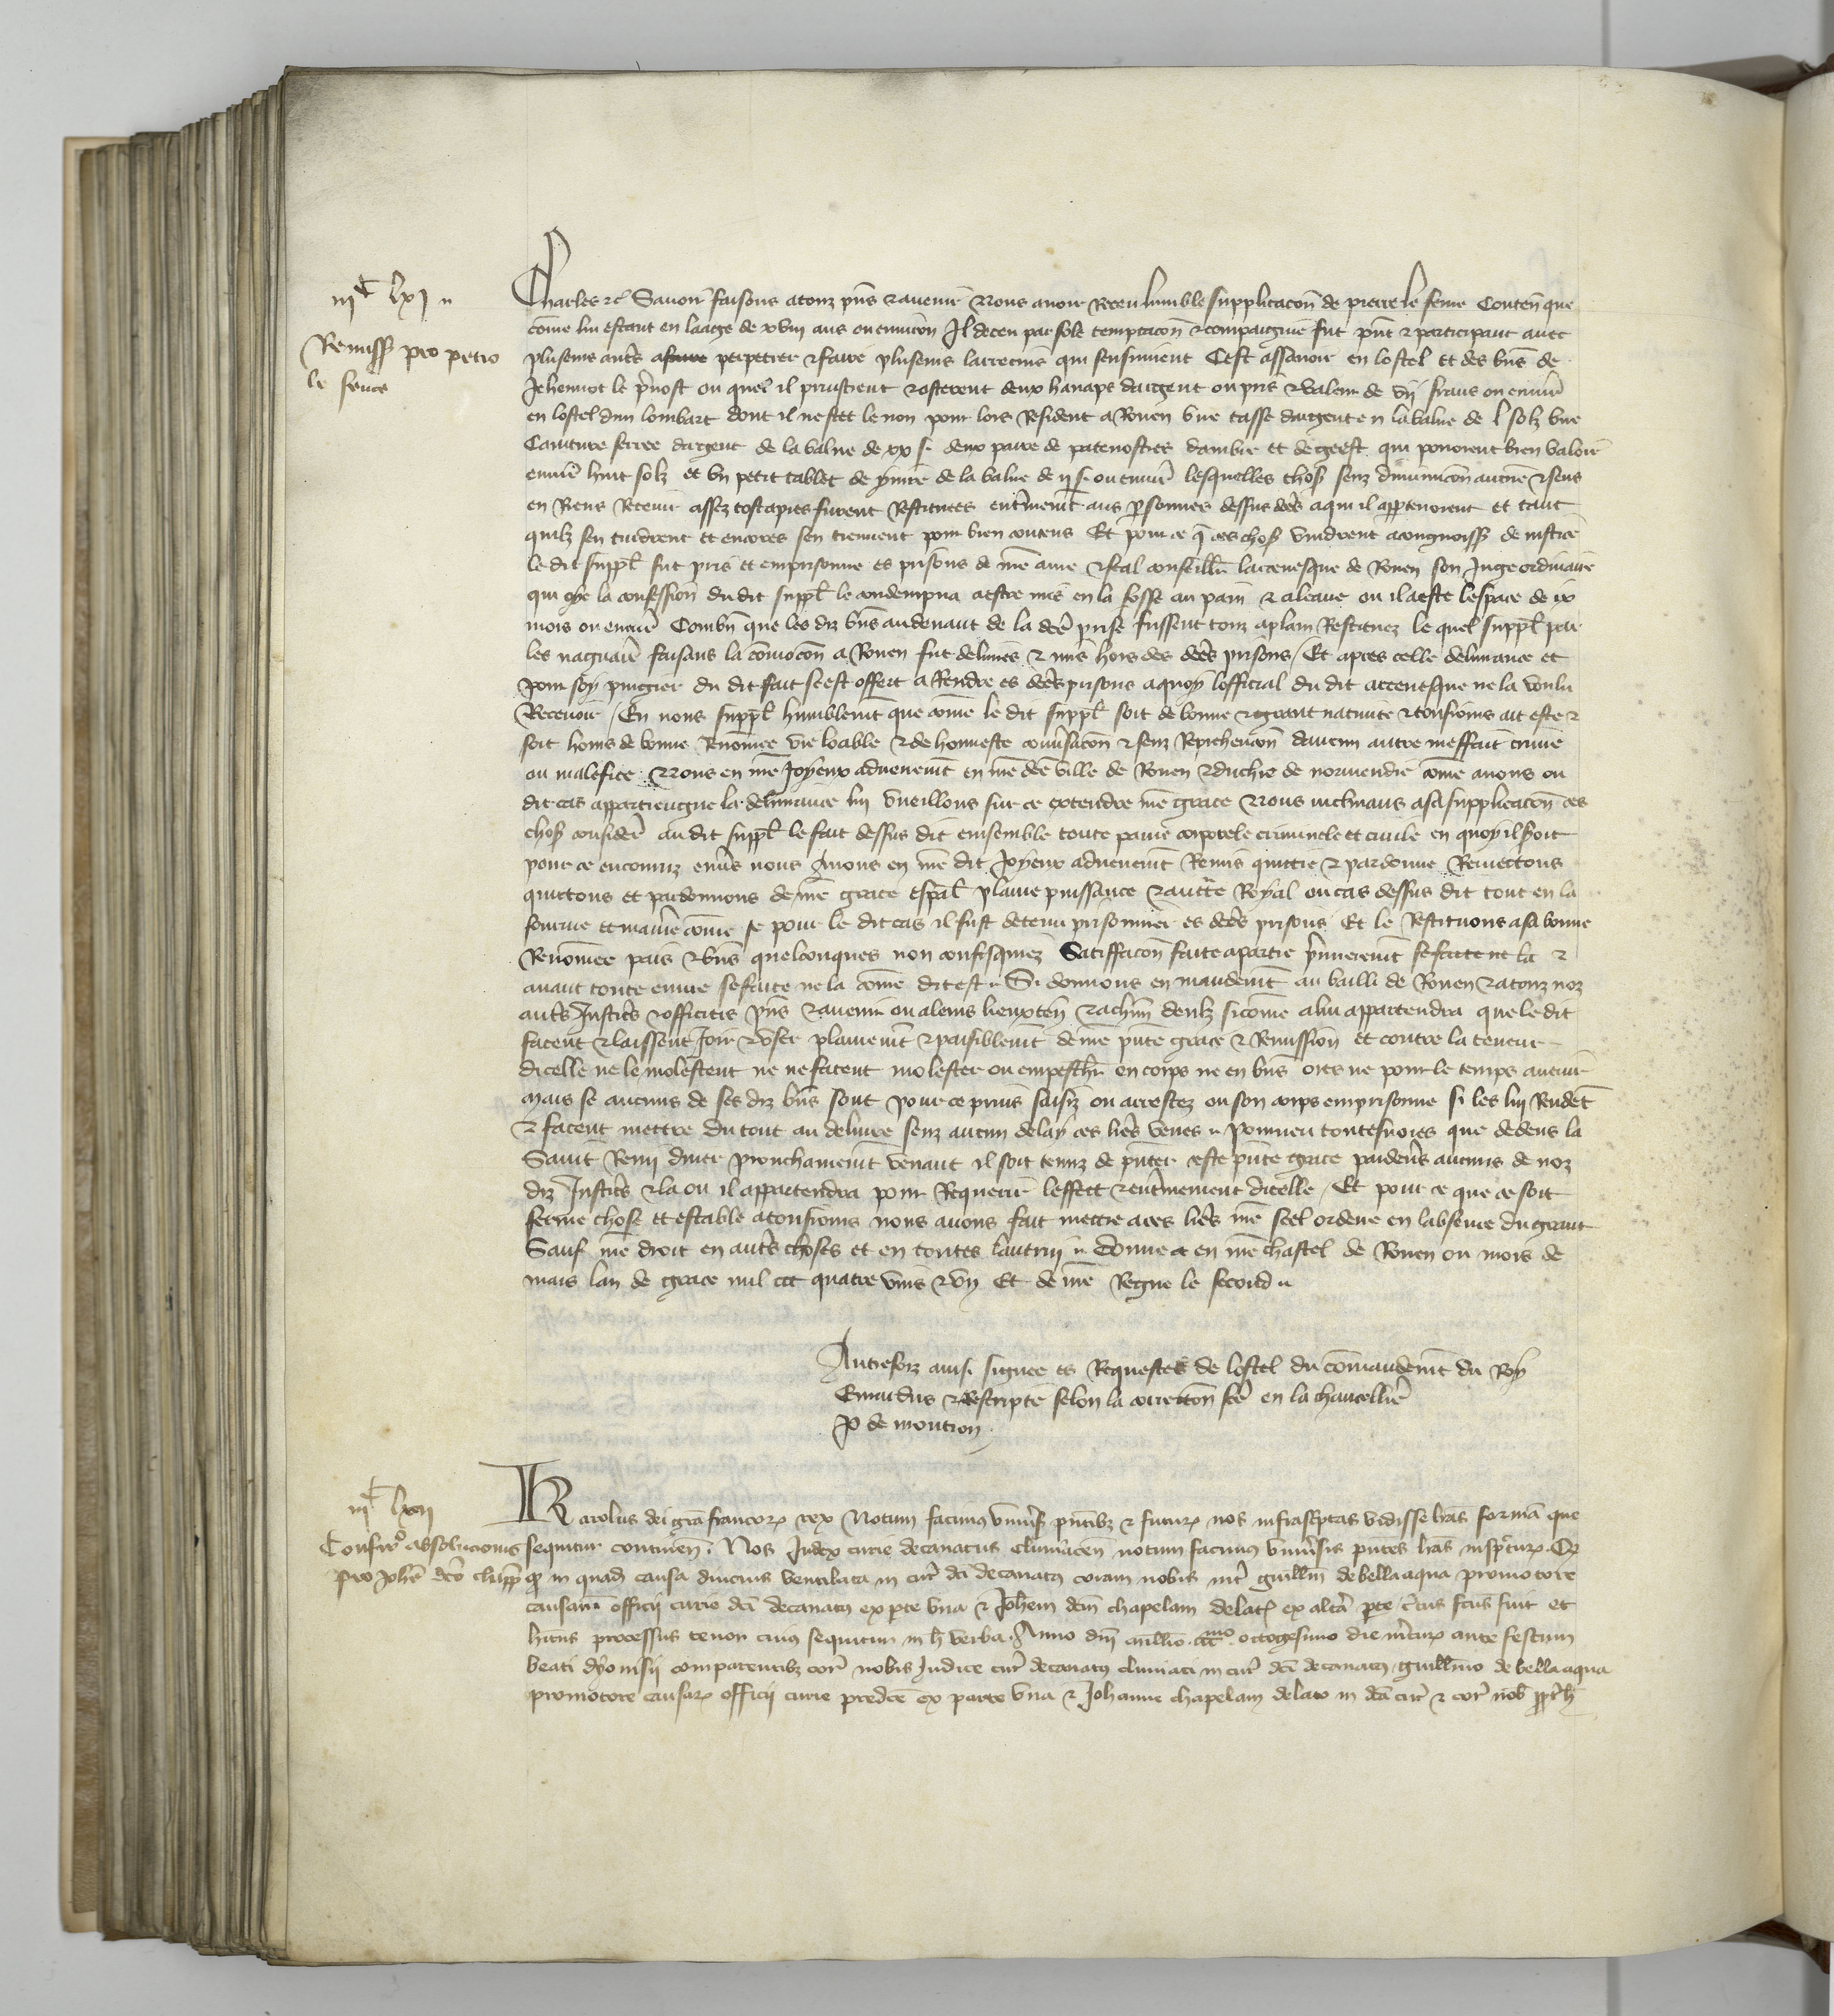 iijc lxj
Remiss pro petro
le feure
Charles etc Sauoir faisons a touz pñs et auenir Nous auoir Receu lumble supplicacoñ de pierre le feure Conteñ que
cõme lui estant en laage de xviij ans ou enuiron Il deceu par fole temptacoñ et compaignie fut pñt et participant auec
plusieurs autrs a faire perpetrer et faire plusieurs larrecins qui sensuiuent Cest assauoir en lostel et des biñs de
Jehennot le preuost ou quel il prinstrent et osterent deux hanaps dargent ou pris et valeur de vij frans ou enuirõ
en lostel dun lombart dont il ne scet le non pour lors Resident a Rouen vne tasse dargent en la value de l solz vne
Cainture ferree dargent de la value de xx s. deux paire de patenostres dambre et de geest qui pouoient bien valoir
enuirõ huit solz et vn petit tablet de yuuire de la value de ij s. ou enuirõ lesquelles chos senz diminucoñ aucune et sens
en Riens Retenir assez tost apres furent Restituees entieremẽt aus personnes dessus dces a qui il appartenoient et tant
quilz sen tindrent et encores sen tiennent pour bien contens Et pour ce q̃ ces chos vindrent a congnoiss de iustice
le dit suppl fut pris et emprisonne es prisons de nre ame et feal conseillr larceuesque de Rouen son Juge ordinaire
qui oye la confession du dit suppl le condempna a estre mis en la fosse au pain et a leaue ou il a este lespace de ix
mois ou enuirõ Combñ que les diz biñs au deuant de la dce prise fussent touz a plain Restituez le quel suppl par
les naguaires faisans la cõmocoñ a Rouen fut deliures et mis hors des dces prisons / Et apres celle deliurance et
pour soy purgier du dit fait sest offert a Rendre es dces prisons a quoy lofficial du dit arceuesque ne la voulu
Receuoir / En nous suppl humblemẽt que cõme le dit suppl soit de bonne et grant natiuite et tousiours ait este et
soit homs de bonne Renõmee vie loable et de honneste conuersacoñ et senz Reprehencoñ daucun autre meffait crime
ou malefice Nous en nre Joyeux aduenemẽt en nre dce ville de Rouen et duchie de normendie cõme auons ou
dit cas appartiengne la deliurance luy vueillons sur ce extendre nre grace Nous inclinans a sa supplicacoñ ces
chos considerẽ au dit suppl le fait dessus dit ensemble toute paine corporele criminele et ciuile en quoy il soit
pour ce encouruz enuers nous Auons en nre dit Joyeux aduenemẽt Remis quittie et pardonne Remettons
quittons et pardonnons de nre grace espal plaine puissance et auctte Royal ou cas dessus dit tout en la
fourme et maniere cõme se pour le dit cas il fust detenu prisonnier es dces prisons Et le Restituons a sa bonne
Renõmee pais et biñs quelconques non confisquiez Satiffacoñ faite a partie premieremẽt se faite ne la et
auant toute euure se faite ne la cõme dit est Si donnons en mandemẽt au bailli de Rouen et a touz noz
autrs Justiciers et officiers pñs et auenir ou a leurs lieuxteñ et a chũn deulz si cõme a lui appartendra que le dit
facent et laissent Joir et vser plainemẽt et paisiblemẽt de nre pñte grace et Remission et contre la teneur
dicelle ne le molestent ne ne facent molester ou empeschr en corps ne en biñs ores ne pour le temps auenir
mais se aucuns de ses diz biñs sont pour ce prins saisiz ou arrestez ou son corps emprisonne si les luy Rendẽt
et facent mettre du tout au deliure senz aucun delay ces lrẽs veues Pourueu toutesuoies que dedens la
Saint Remi dicte prouchainemẽt venant il soit tenuz de pñter ceste pñte grace pardeuers aucuns de noz
diz Justicrs et la ou il appartendra pour Requerir leffect et enterinement dicelle / Et pour ce que ce soit
ferme chose et estable a tousiours nous auons fait mettre a ces lrẽs nre seel ordene en labsence du grant
Sauf nre droit en autrs choses et en toutes lautruy donne en nre chastel de Rouen ou mois de
mars lan de grace mil ccc quatre vins et vn Et de nre Regne le second
Autresfoiz ainsi signee es Requestes de lostel du cõmandemẽt du Roy
Emardus et Rescripte selon la correccoñ fce en la chancellrie
P de montion
iijc lxij
Confiro absolucionis
pro Johe dco chapp
Karolus dei gra francor rex Notum facimus vniuers pñtibz et futur nos infrascptas vidisse lras formã que
sequitur continen. Nos Judex curie decanatus cluniaceñ notum facimus vniuersis pñtes lras inspectur. Q
q in quad causa diucius ventilata in cur dci decanatus coram nobis intr guillm de bella aqua promotore
causarũ officij curie dci decanatus ex parte vna et Johem dcm chapelam delat ex altera parte / cius fcus fuit et
hitus processus tenor cuius sequitur in h verba. Anno dni millio cccmo octogesimo die mrcur ante festum
beati dyonisij comparentibz cor nobis Judice cur decanatus cluniaci in cur dci decanatus guillmo de bella aqua
promotore causar officij curie predce ex parte vna et Johanne chapelam delato in dca cur et cor nob